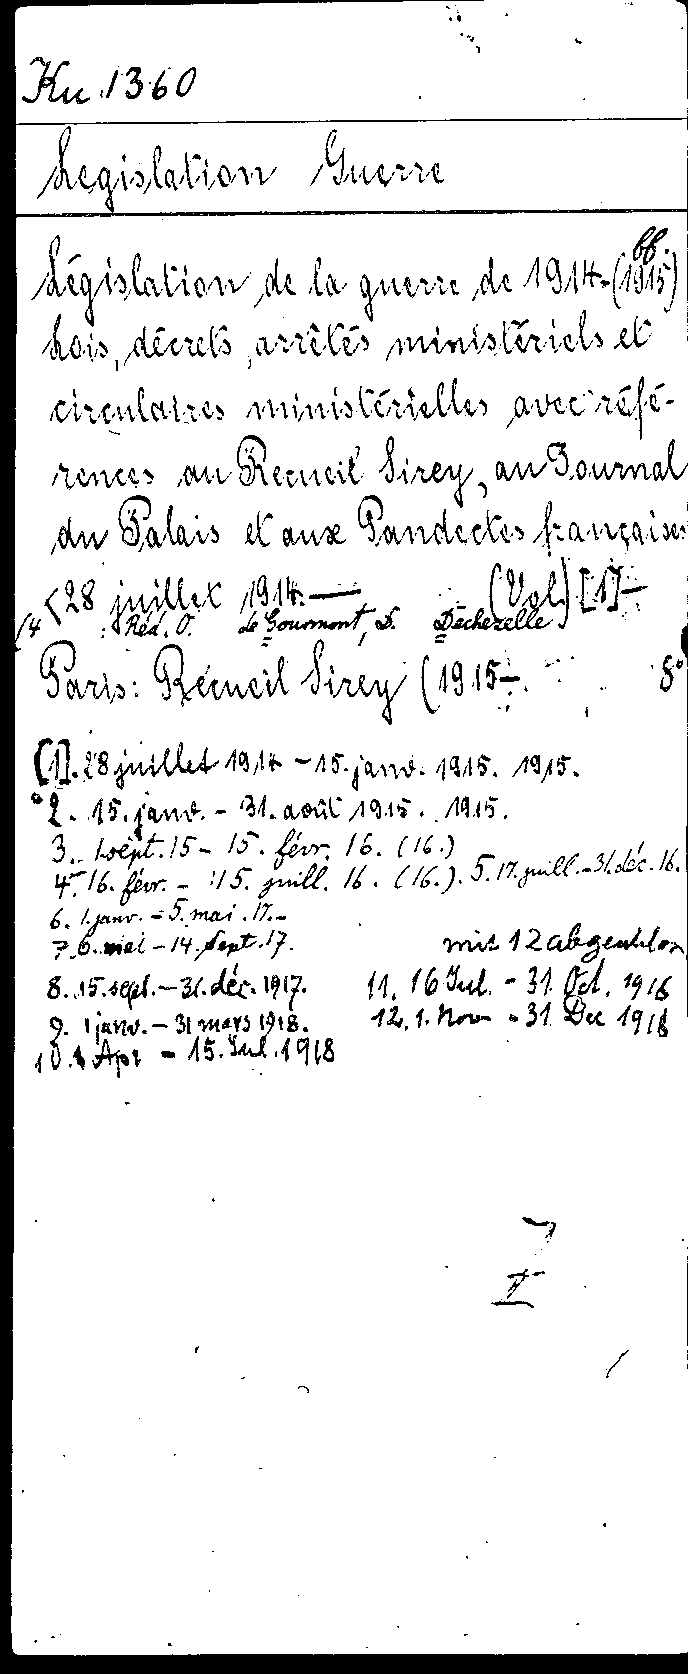 Ku 1360
Législation Guerre
ff.
Législation de la guerre de 1914-(1915)
Lois, décrets, arrêtés ministériels et
circulaires ministérielles avec réfé-
rences au Recueil Sirey, au Journal
du Palais et aux Pandectes françaises
28 juillet 1914.— (Vol) [1]-
Réd. O. de Gourmont, D. Décherelle
Paris: Recueil Sirey (1915- 8°
[1]. 28 juillet 1914 - 15. janv. 1915. 1915.
2. 15. janv. - 31. août 1915. 1915.
3. 1.sept. 15 - 15. févr. 16. (16.)
4. 16. févr. - 15. juill. 16. (16.). 5. 17. juill. - 31. déc. 16.
6. 1. janv. - 5. mai. 17.-
7. 6. mai - 14. Sept. 17. mit 12 abgeschlossen
8. 15. sept. - 31. déc. 1917. 11. 16 Jul. - 31 Oct. 1918
9. 1 janv. - 31 mars 1918. 12. 1. Nov - 31 Dec 1918
10. 1 Apr - 15. Jul. 1918